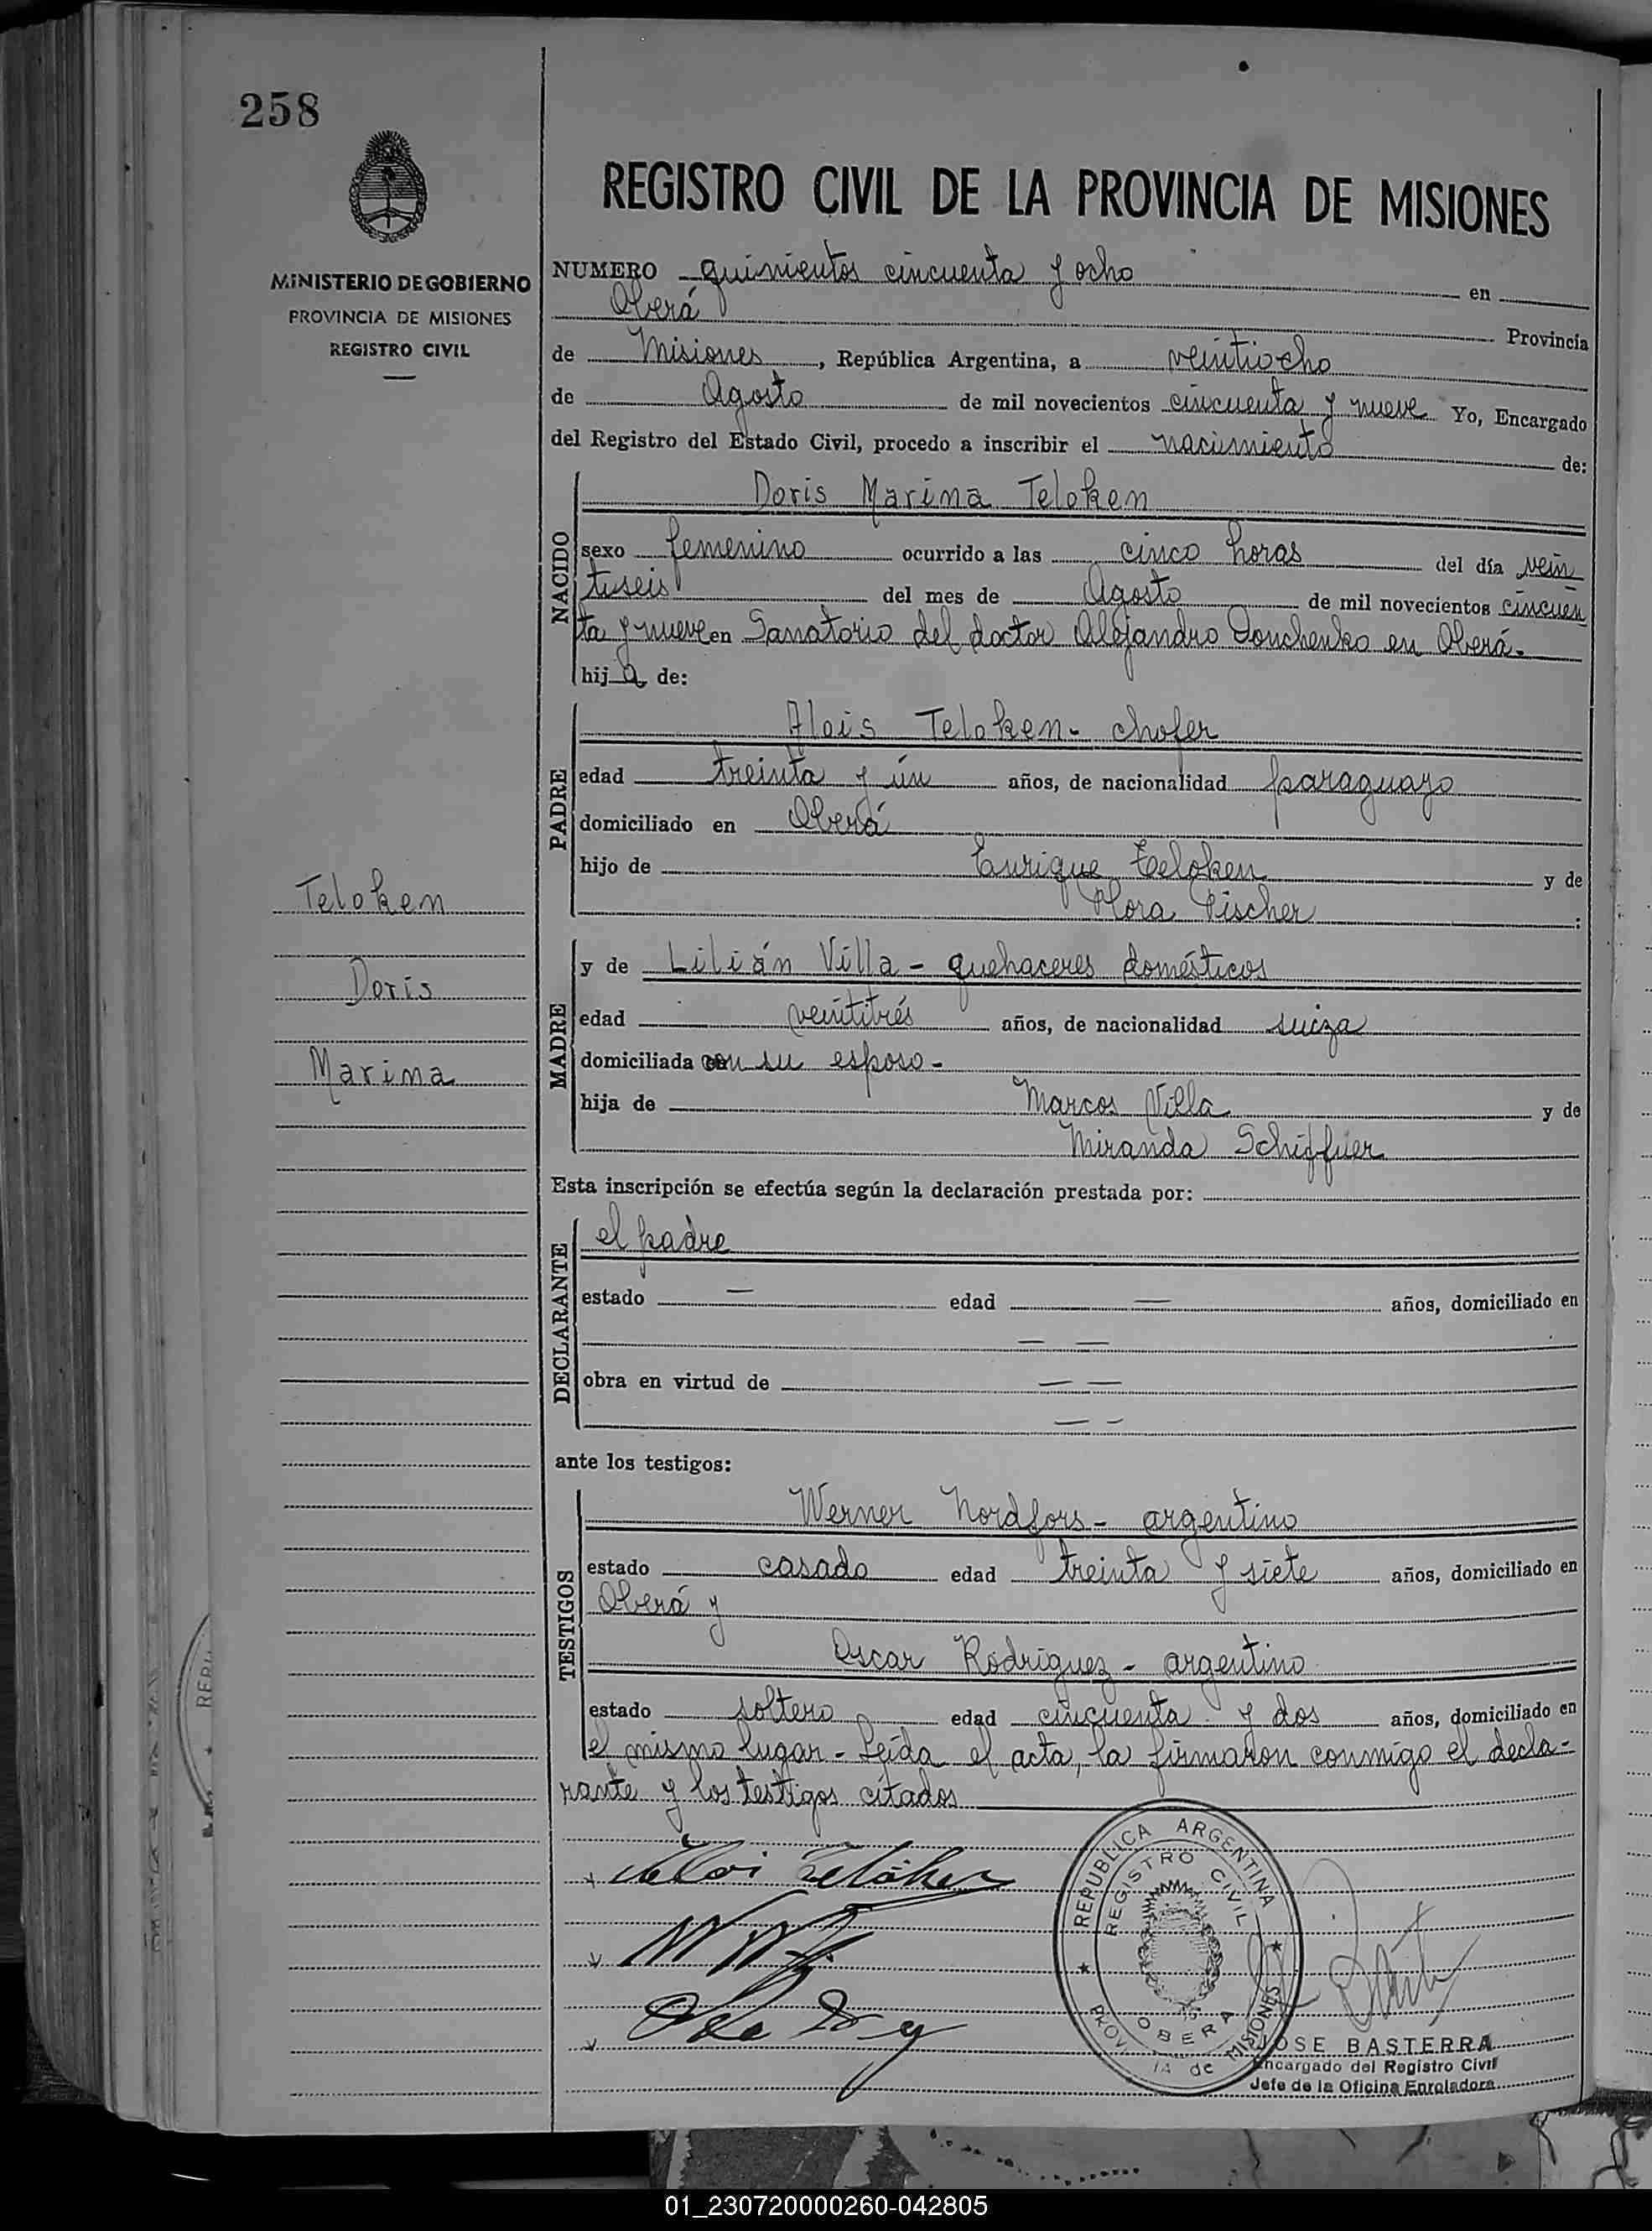 258
REGISTRO CIVIL DE LA PROVINCIA DE MISIONES
MINISTERIO DE GOBIERNO
PROVINCIA DE MISIONES
REGISTRO CIVIL
NUMERO quinientos cincuenta y ocho en
Oberá Provincia
de Misiones, República Argentina, a veintiocho
de Agosto de mil novecientos cincuenta y nueve Yo, Encargado
del Registro del Estado Civil, procedo a inscribir el nacimiento de:
NACIDO
Doris Marina Teloken
sexo femenino ocurrido a las cinco horas del día vein
tiseis del mes de Agosto de mil novecientos cincuen
ta y nueve en Sanatorio del doctor Alejandro Donchenko en Oberá.
hija de:
PADRE
Alois Teloken - chofer
edad treinta y ún años, de nacionalidad paraguayo
domiciliado en Oberá
hijo de Enrique Teloken y de
Flora Fischer
Teloken
Doris
Marina
MADRE
y de Lilián Villa - quehaceres domésticos
edad veintitrés años, de nacionalidad suiza
domiciliada con su esposo -
hija de Marcos Villa y de
Miranda
Esta inscripción se efectúa según la declaración prestada por:
DECLARANTE
el padre
estado — edad — años, domiciliado en
— —
obra en virtud de — —
— -
ante los testigos:
TESTIGOS
Werner Nordfors - argentino
estado casado edad treinta y siete años, domiciliado en
Oberá y
Oscar Rodriguez - argentino
estado soltero edad cincuenta y dos años, domiciliado en
el mismo lugar - Leída el acta, la firmaron conmigo el decla-
rante y los testigos citados
REPUBLICA ARGENTINA
REGISTRO CIVIL
OBERA
MISIONES
JOSE BASTERRA
Encargado del Registro Civil
Jefe de la Oficina Enroladora
01_230720000260-042805